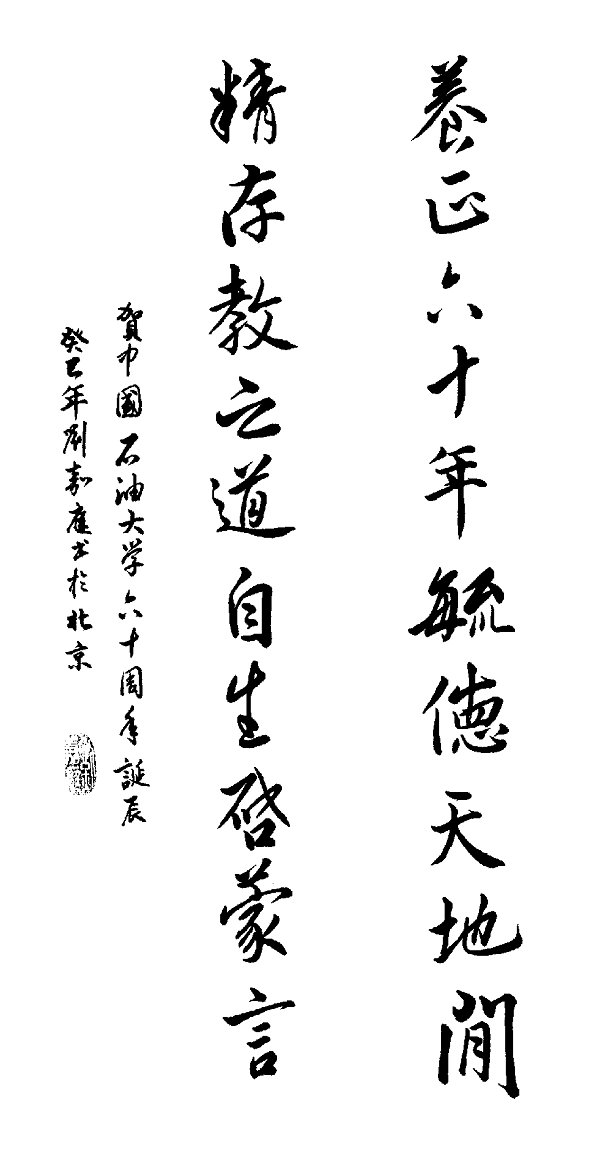 養正六十年毓德天地間
精存教之道自生啓蒙言
賀中國石油大学六十周年誕辰
癸巳年劉嘉庭书於北京